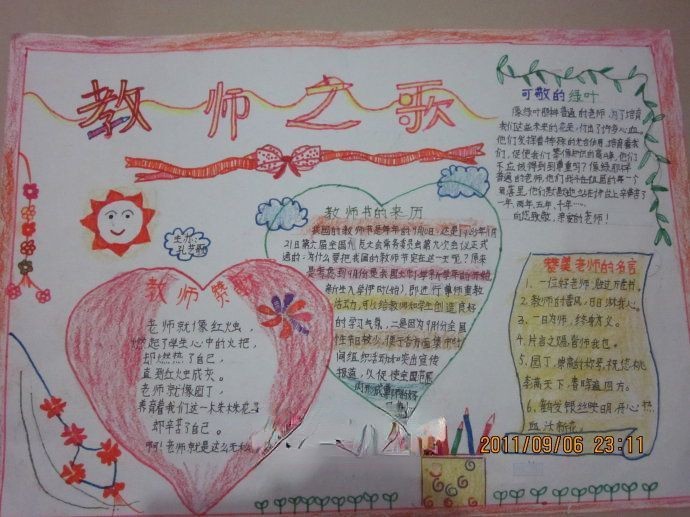 教师之歌
可敬的绿叶
像绿叶那样普通的老师,为了培育
我们这些未来的花朵,付出了许多心血。
他们发挥着特殊的光合作用,培育着我
们,促使我们
不应该得到尊重吗?像绿叶那样
普通的老师,他们战斗在祖国的每一个
角落里,他们默默地站在讲台上辛勤了
一年、两年、五年、十年……
向您致敬,亲爱的老师!
主办:
教师节的来历
我国的教师节是每年的9月10日,这是1985年1月
21日第六届全国人民大会常务委员会第九次会议正式
通的。为什么要把我国的教师节定在这一天呢?原来
是考虑到9月份是我国大中小学新学年的开始
新生入学伊始,即进行尊师重教
活动,可以给教师和学生创造良好
的学习气氛。二是因为9月份全国
性节日较少,便于各方面集中时
间组织活动和突出宣传
报道,以促使全国范围
内形成尊师的好
教师赞歌
老师就像红烛,
燃起了学生心中的火把,
却燃热了自己,
直到红烛成灰。
老师就像园丁,
养育着我们这一朵朵花
却辛苦了自己。
啊!老师就是这么无私
赞美老师的名言
1、一位好老师,胜过万卷书。
2、教师的春风,日日沐我心。
3、一日为师,终身为父。
4、片言之赐,皆师我也。
5、园丁,崇高的称号,祝您桃
李满天下,春晖遍四方。
6、
2011/09/06 23:11